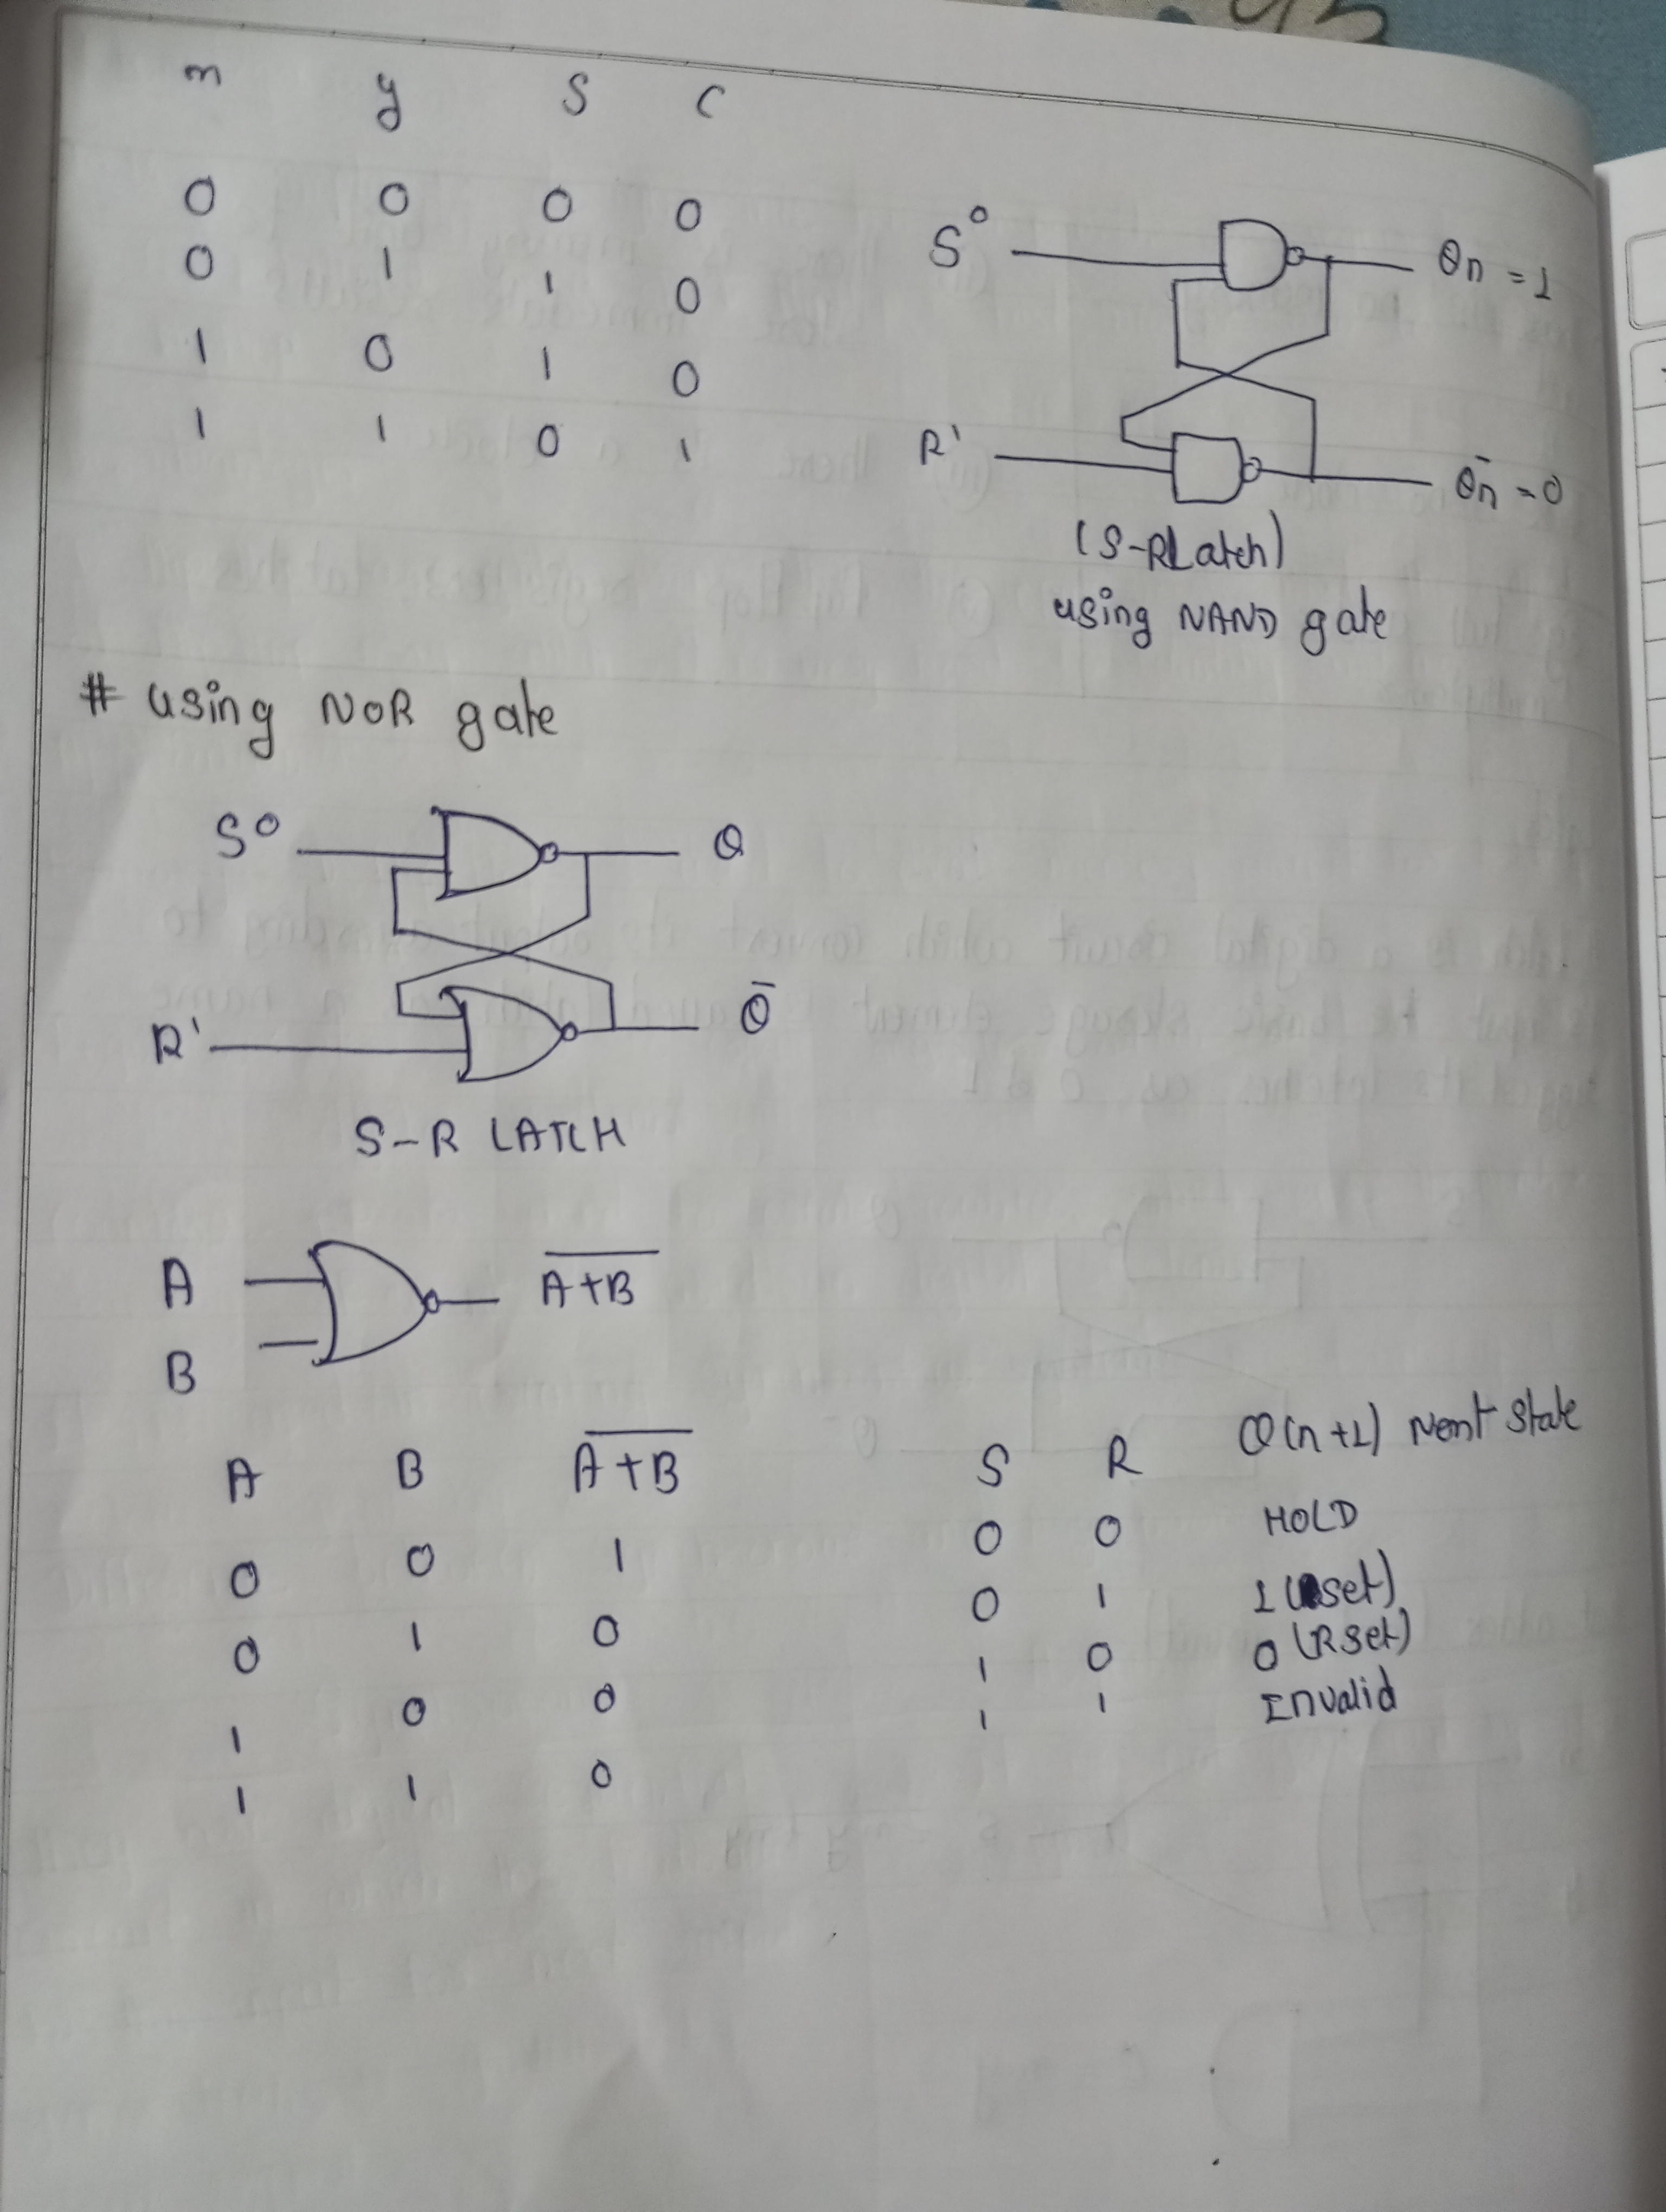 n y S C
0 0 0 0
0 1 1 0
1 0 1 0
1 1 0 1
S 0 Qn = 1
R 1 Q̄n = 0
(S-R Latch)
using NAND gate
# using NOR gate
S 0 Q
R 1 Q̄
S-R LATCH
A
B
A̅+̅B̅
A B A̅+̅B̅
0 0 1
0 1 0
1 0 0
1 1 0
S R Q(n+1) Next State
0 0 HOLD
0 1 1 (set)
1 0 0 (Rset)
1 1 Invalid